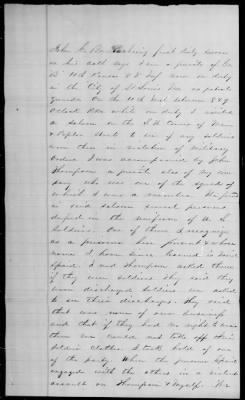 John C. Buckering first duly sworn
on his oath says I am a private of Co
"B" 10th Kansas V. Inf now on duty
in the City of St Louis Mo as patrol
Guard. On the 10th Inst between 8 & 9
O'clock P.M. while on duty I visited
a saloon on the S.E. Corner of
& Poplar Street to see if any soldiers
were then in violation of Military
Orders I was accompanied by John
Thompson a private also of my com
pany who was one of the squad of
which I was a member.
in said saloon several persons
dressed in the uniform of U S
Soldiers. One of them I recognize
as a prisoner here present & whose
name I have since learned is
Speed. I and Thompson asked them
if they were soldiers they said they
were discharged soldiers we asked
to see their discharges. they said
that was none of our business
and that if they had no right to wear
them we could not take off their
Soldier Clothes I took hold of one
of the party. When the prisoner Speed
engaged with the others in a violent
assault on Thompson & Myself. We